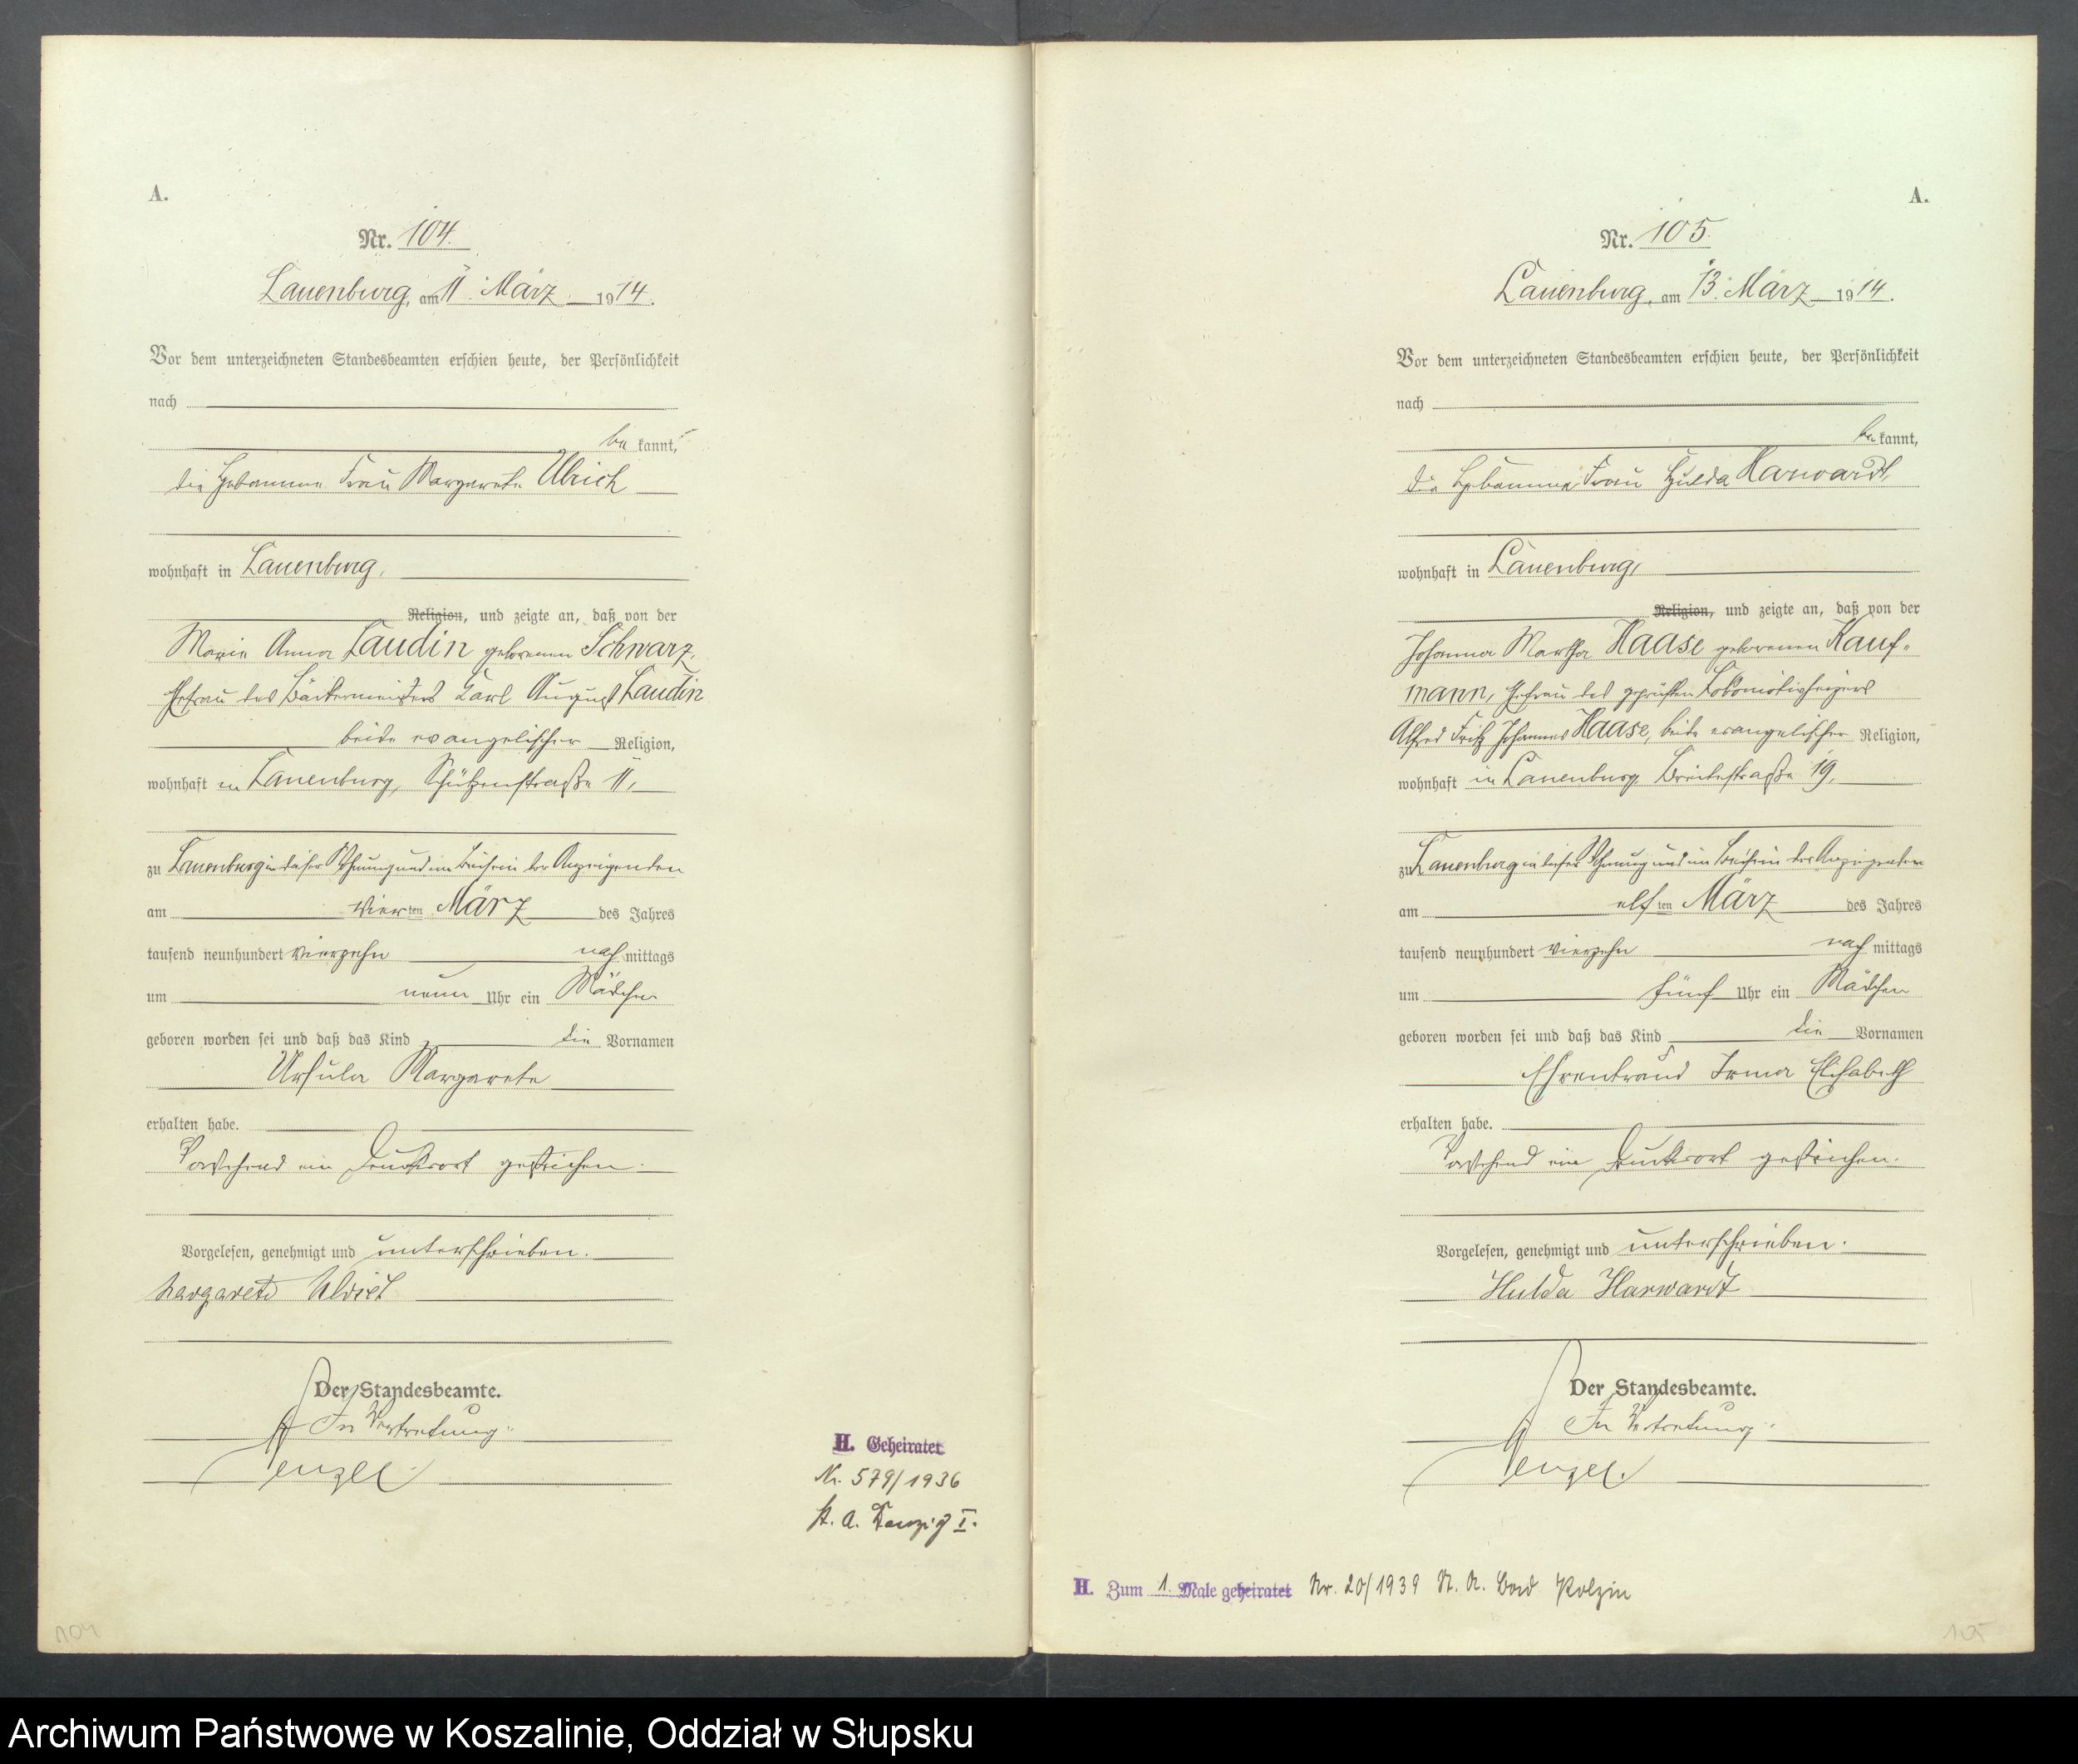 A.
Nr. 104.
Lauenburg, am 11. März 1914.
Vor dem unterzeichneten Standesbeamten erschien heute, der Persönlichkeit
nach
be kannt,
die Hebamme Frau Margarete Ulrich
wohnhaft in Lauenburg,
Religion, und zeigte an, daß von der
Marie Anna Laudin geborenen Schwarz,
Ehefrau des Bäckermeisters Carl August Laudin
beide evangelischer Religion,
wohnhaft in Lauenburg, Schützenstraße 11,
zu Lauenburg in dieser Wohnung und im Beisein der Anzeigenden
am vierten März des Jahres
tausend neunhundert vierzehn nach mittags
um neun Uhr ein Mädchen
geboren worden sei und daß das Kind die Vornamen
Ursula Margarete
erhalten habe.
Vorstehend ein Druckwort gestrichen.
Vorgelesen, genehmigt und unterschrieben.
Margarete Ulrich
Der Standesbeamte.
In Vertretung:
H. Geheiratet
Nr. 579/1936
St. A. Danzig I.
104
A.
Nr. 105.
Lauenburg, am 13. März 1914.
Vor dem unterzeichneten Standesbeamten erschien heute, der Persönlichkeit
nach
be kannt,
die Hebamme Frau Hulda Harwardt,
wohnhaft in Lauenburg,
Religion, und zeigte an, daß von der
Johanna Martha Haase geborenen Kauf-
mann, Ehefrau des geprüften Lokomotivheizers
Alfred Fritz Johannes Haase, beide evangelischer Religion,
wohnhaft in Lauenburg, Breitestraße 19,
zu Lauenburg in dieser Wohnung und im Beisein der Anzeigenden
am elften März des Jahres
tausend neunhundert vierzehn nach mittags
um fünf Uhr ein Mädchen
geboren worden sei und daß das Kind die Vornamen
Ehrentraud Irma Elisabeth
erhalten habe.
Vorstehend ein Druckwort gestrichen.
Vorgelesen, genehmigt und unterschrieben.
Hulda Harwardt
Der Standesbeamte.
In Vertretung:
H. Zum 1. Male geheiratet Nr. 20/1939 St. A. Bad Polzin
105
Archiwum Państwowe w Koszalinie, Oddział w Słupsku